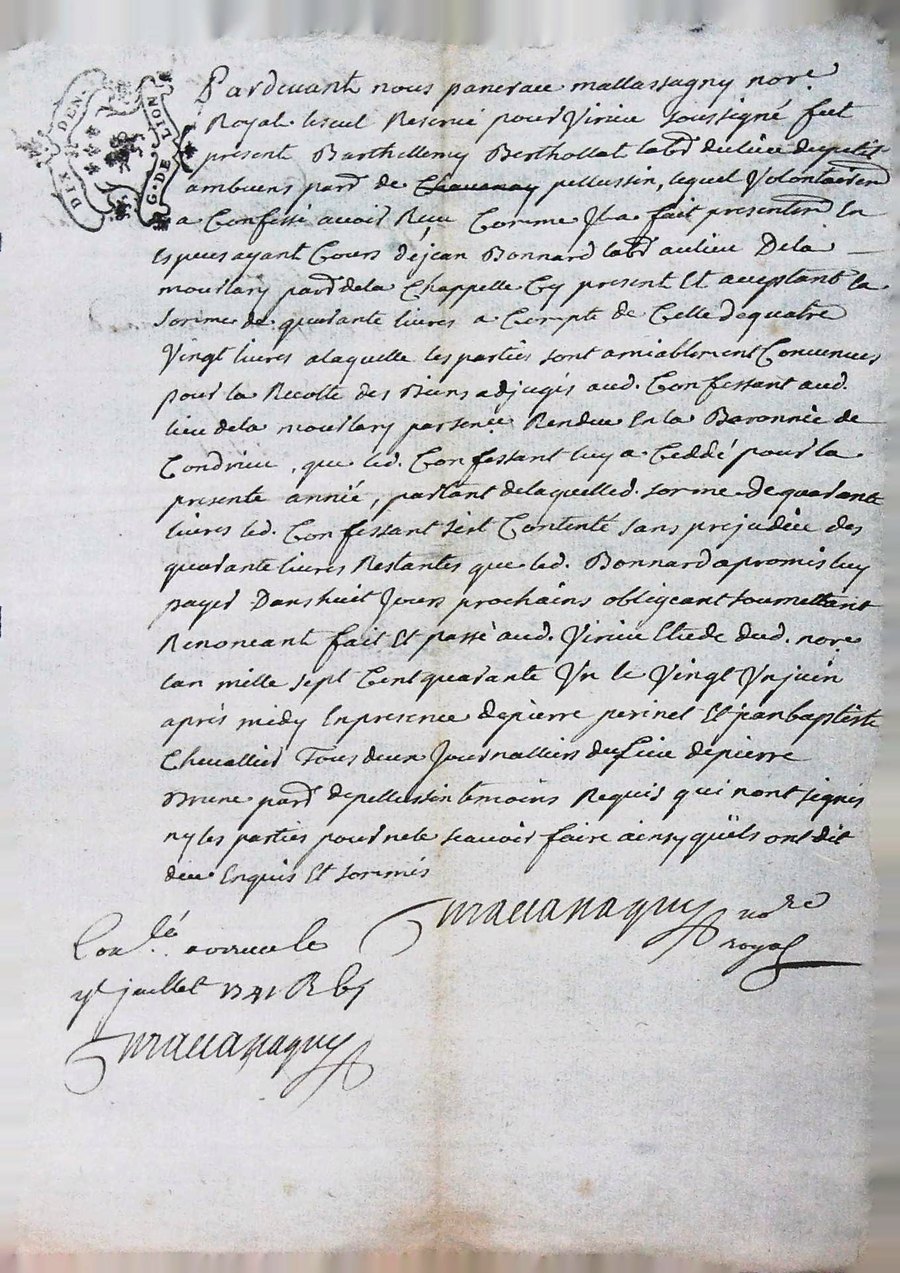 DIX DEN.
G. DE LION
Pardevant nous panerace mallassagny nore.
Royal leseul Reservé pour Virieu soussigné fut
présent Barthellemy Berthollat labr. dulieu depetit
ambuens parr. de pellussin, lequel Volontairemt.
a Confessé avoir Reçu Comme Jl a fait presentemt. En
Especes ayant Cours dejean Bonnard labr. aulieu Dela
mouilary parr. dela Chappelle Cy present Et acceptant la
somme de quarante livres a Compte de Celle dequatre
Vingt livres alaquelle les parties sont amiablement Convenues
pour la Recolte des Biens adjugés aud. Confessant aud.
lieu dela mouilary par Rendue En la Baronnie de
Condrieu, que led. Confessant luy a Ceddé pour la
presente année, partant delaquelled. somme dequarante
livres led. Confessant s'est Contenté sans prejudice des
quarante livres Restantes que led. Bonnard apromis luy
payer Dans huit Jours prochains obligeant soumettant
Renonceant fait Et passé aud. Virieu Etude dud. nore.
lan mille sept Cent quarante Un le Vingt Un juin
aprés midy Enpresence depierre perinel Et jeanbaptiste
Chevallier Tous deux Journalliers du lieu depierre
Brune parr. depellussin temoins Requis qui nont signés
ny les parties pour nele scavoir faire ainsy quils ont dit
deu Enquis Et sommés
mallassagny nore
royal
Conlé. a le
juillet 1741 R
mallassagny